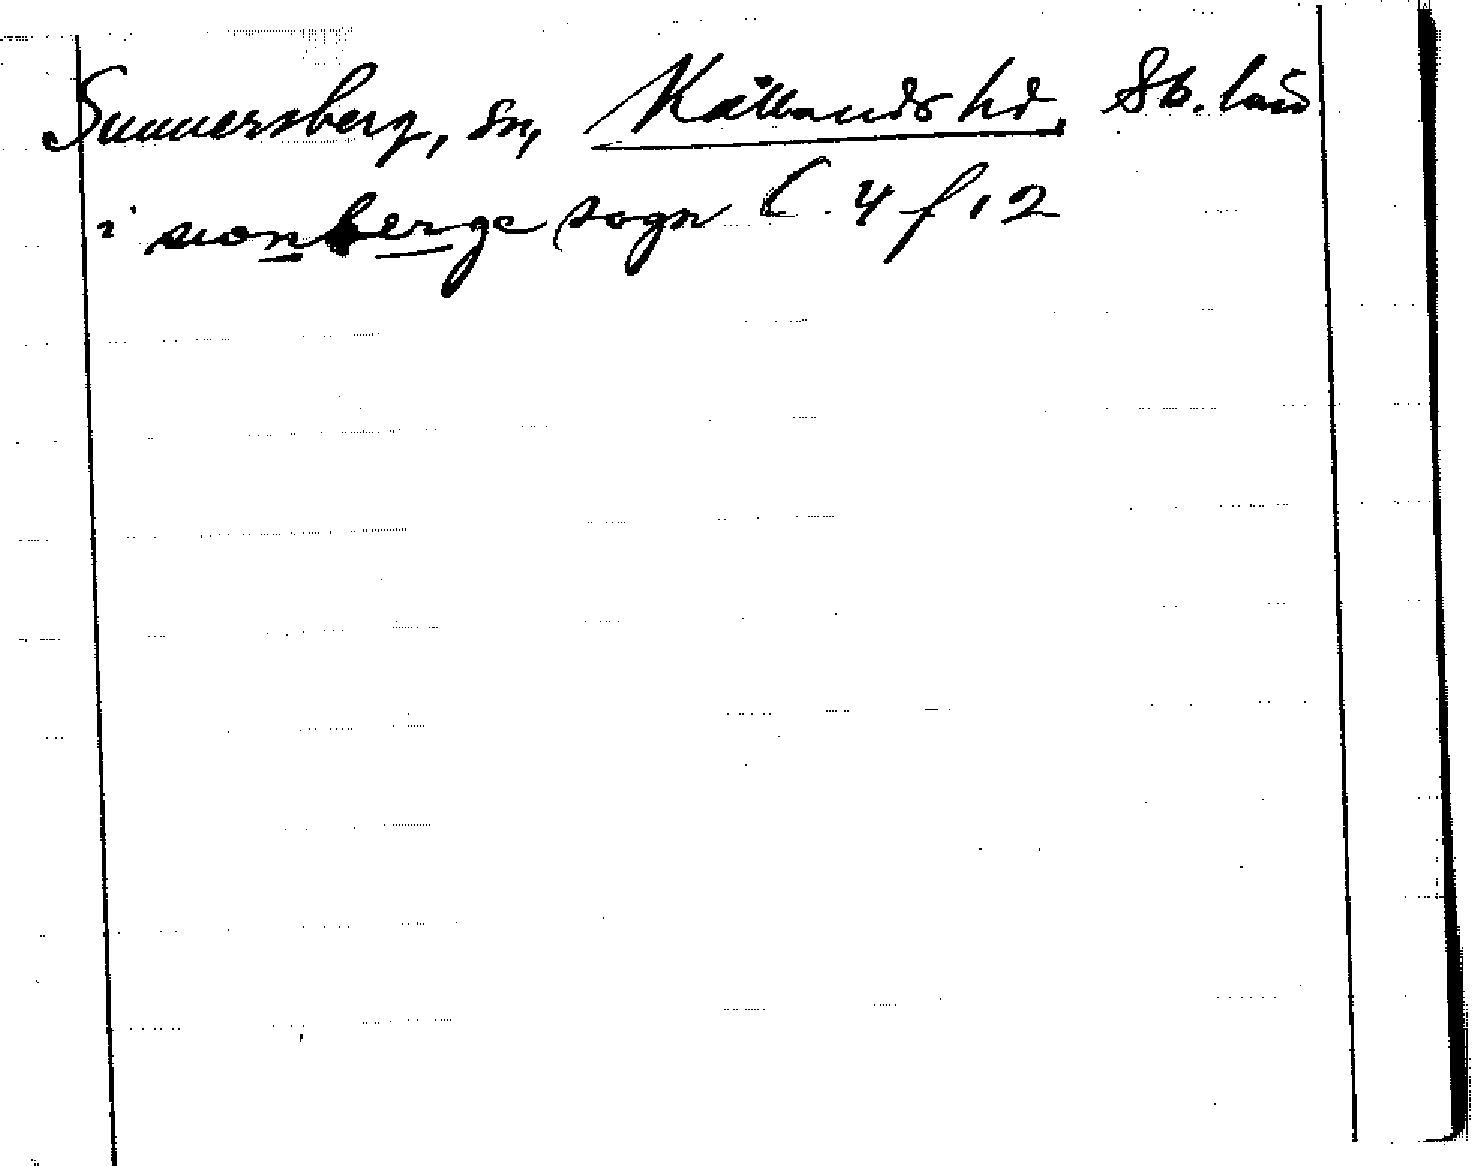 Sunnersberg, sn, Kållands hd, Sk. län
i sionberge sogn C. 4 f 12